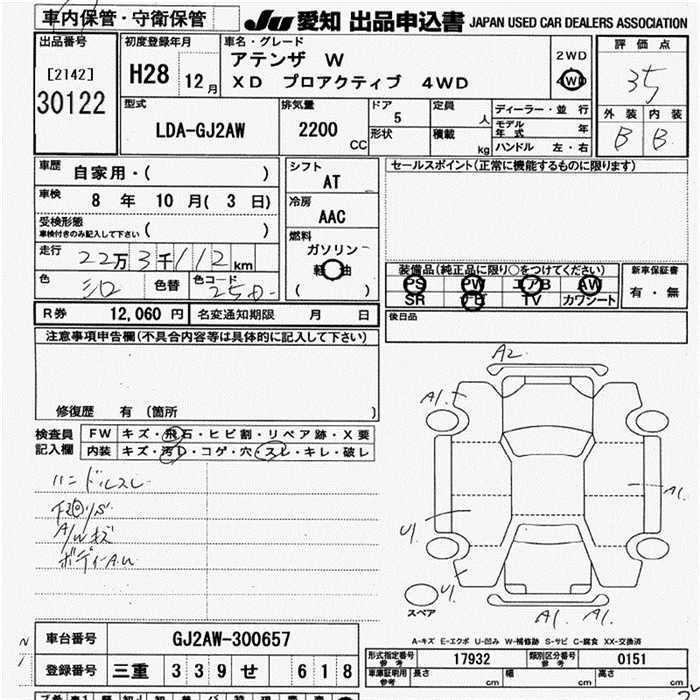 車内保管・守衛保管
JU 愛知 出品申込書 JAPAN USED CAR DEALERS ASSOCIATION
出品番号
[2142]
30122
初度登録年月
H28 12月
車名・グレード
アテンザ W
XD プロアクティブ 4WD
2WD
4WD
評価点
3.5
外装 内装
B B
型式
LDA-GJ2AW
排気量
2200 CC
ドア
5
形状
定員 人
積載 kg
ディーラー・並行
モデル年式 年
ハンドル 左・右
車歴 自家用・( )
車検 8年 10月( 3日)
受検形態
車検付きのみ記入して下さい ( )
走行 22万3千112km
色 シロ 色替 色コード 25D
シフト
AT
冷房
AAC
燃料
ガソリン
軽油
( )
セールスポイント(正常に機能するものに限ります)
装備品(純正品に限り○をつけてください)
PS PW エアB AW
SR ナビ TV カワシート
新車保証書
有・無
後日品
R券 12,060円 名変通知期限 月 日
注意事項申告欄(不具合内容等は具体的に記入して下さい)
修復歴 有 (箇所 )
検査員
記入欄
FW キズ・飛石・ヒビ割・リペア跡・X要
内装 キズ・汚れ・コゲ・穴・スレ・キレ・破レ
ハンドルスレ
A/Wキズ
ボディーA.U
A2
A1.
A1
U1
U1.
A1. A1.
スペア
A-キズ E-エクボ U-凹み W-補修跡 S-サビ C-腐食 XX-交換済
車台番号 GJ2AW-300657
登録番号 三重 339 せ 618
形式指定番号
参考
17932
類別区分番号
参考
0151
車庫証明用
参考
長さ cm 幅 cm 高さ cm